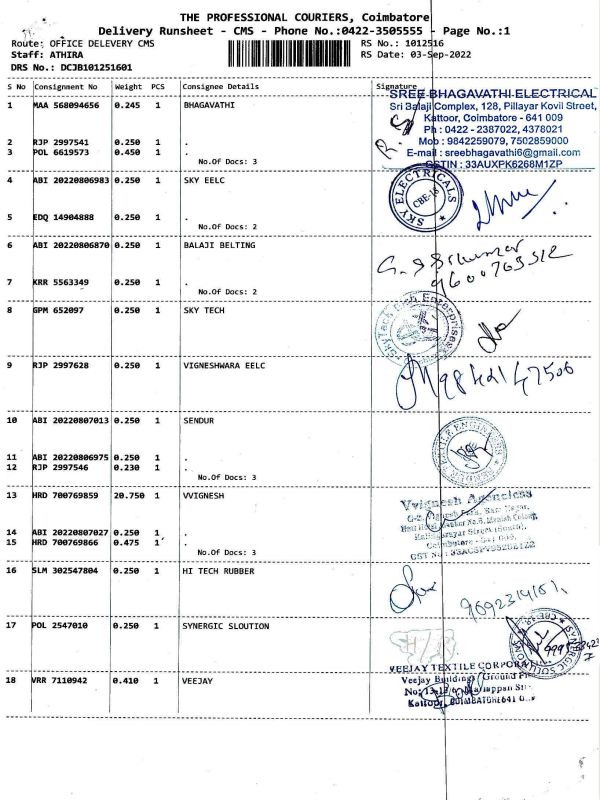 THE PROFESSIONAL COURIERS, Coimbatore
Delivery Runsheet - CMS - Phone No.:0422-3505555 - Page No.:1
Route: OFFICE DELEVERY CMS
RS No.: 1012516
Staff: ATHIRA
RS Date: 03-Sep-2022
DRS No.: DCJB101251601
S No Consignment No Weight PCS Consignee Details Signature
SREE BHAGAVATHI ELECTRICAL
1 MAA 568094656 0.245 1 BHAGAVATHI
Sri Balaji Complex, 128, Pillayar Kovil Street,
Kattoor, Coimbatore - 641 009
Ph : 0422 - 2387022, 4378021
2 RJP 2997541 0.250 1 .
Mob : 9842259079, 7502859000
3 POL 6619573 0.450 1 .
E-mail : sreebhagavathi6@gmail.com
No.Of Docs: 3
GSTIN : 33AUXPK6268M1ZP
4 ABI 20220806983 0.250 1 SKY EELC
SKY ELECTRICALS
CBE-18
5 EDQ 14904888 0.250 1 .
No.Of Docs: 2
6 ABI 20220806870 0.250 1 BALAJI BELTING
9600763512
7 KRR 5563349 0.250 1 .
No.Of Docs: 2
8 GPM 652097 0.250 1 SKY TECH
9 RJP 2997628 0.250 1 VIGNESHWARA EELC
9842147506
10 ABI 20220807013 0.250 1 SENDUR
11 ABI 20220806975 0.250 1 .
12 RJP 2997546 0.230 1 .
No.Of Docs: 3
13 HRD 700769859 20.750 1 VVIGNESH
Vvignesh Agenciess
14 ABI 20220807027 0.250 1 .
15 HRD 700769866 0.475 1 .
No.Of Docs: 3
16 SLM 302547804 0.250 1 HI TECH RUBBER
17 POL 2547010 0.250 1 SYNERGIC SLOUTION
VEEJAY TEXTILE
18 VRR 7110942 0.410 1 VEEJAY
Veejay Building
Kattoor